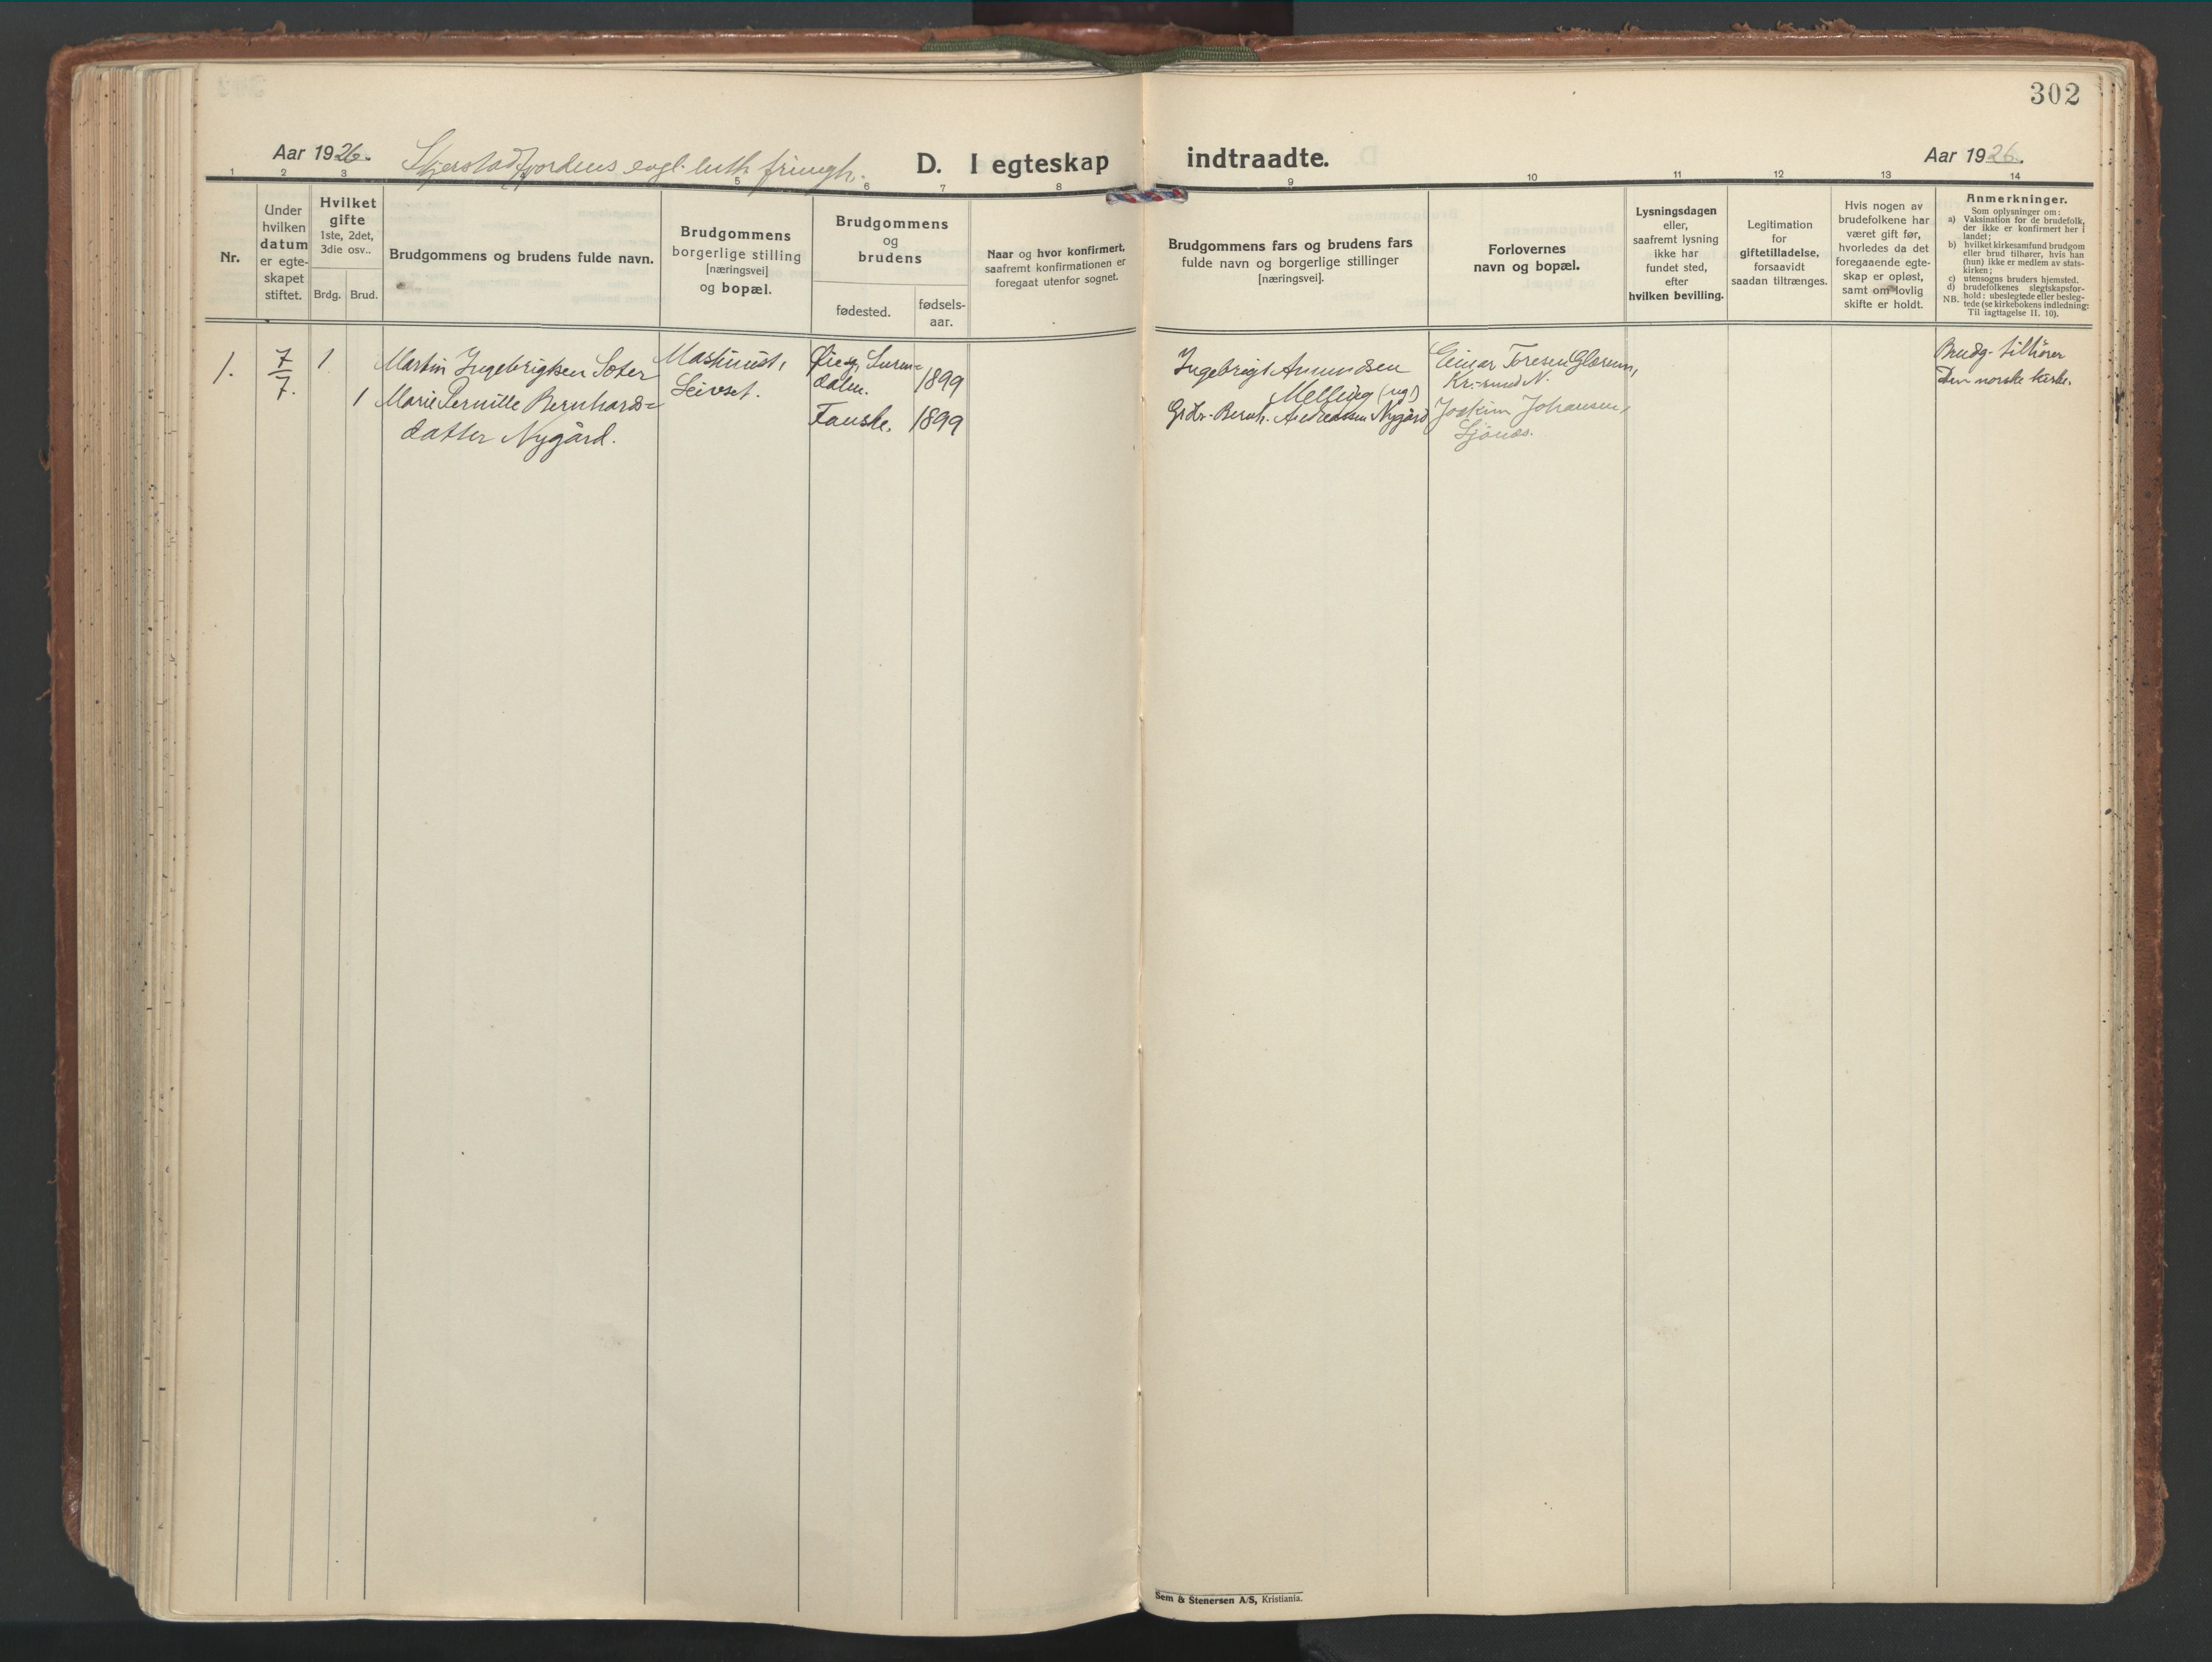 302
Aar 1926.
Skjerstadfjordens evgl. luth frimgh.
D. I egteskap indtraadte.
Aar 1926.
1 2 3 5 6 7 8 9 10 11 12 13 14
Nr.
Under
hvilken
datum
er egte-
skapet
stiftet.
Hvilket
gifte
1ste, 2det,
3die osv..
Brdg. Brud.
Brudgommens og brudens fulde navn.
Brudgommens
borgerlige stilling
[næringsvei]
og bopæl.
Brudgommens
og
brudens
fødested.
fødsels-
aar.
Naar og hvor konfirmert,
saafremt konfirmationen er
foregaat utenfor sognet.
Brudgommens fars og brudens fars
fulde navn og borgerlige stillinger
[næringsvei].
Forlovernes
navn og bopæl.
Lysningsdagen
eller,
saafremt lysning
ikke har
fundet sted,
efter
hvilken bevilling.
Legitimation
for
giftetilladelse,
forsaavidt
saadan tiltrænges.
Hvis nogen av
brudefolkene har
været gift før,
hvorledes da det
foregaaende egte-
skap er opløst,
samt om lovlig
skifte er holdt.
Anmerkninger.
Som oplysninger om:
a) Vaksination for de brudefolk,
der ikke er konfirmert her i
landet;
b) hvilket kirkesamfund brudgom
eller brud tilhører, hvis han
(hun) ikke er medlem av stats-
kirken;
c) utensogns bruders hjemsted.
d) brudefolkenes slegtskapsfor-
hold: ubeslegtede eller besleg-
NB. tede (se kirkebokens indledning:
Til iagttagelse II. 10).
1.
7
7.
1
1
Martin Ingebrigtsen Soter
Marie Pernille Bernhards=
datter Nygård.
Maskinist,
Leivset.
Øieg, Suren=
dalen.
1899
Fauske. 1899
Ingebrigt Amundsen
Melling (ug)
Grdbr. Bernh. Andreassen Nygård
Einar Toresen Glærum,
Kr.-sund N.
Joakim Johansen,
Sjönås.
Brudg. tilhörer
Den norske kirke.
Sem & Stenersen A/S, Kristiania.